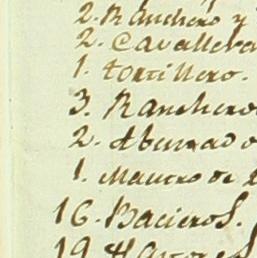 2. Ranchero y
2. Cavallera
1. tortillero.
3. Ranchero
2. Ahumado
1. Maestro de
16. Bacieros.
19. Hatores